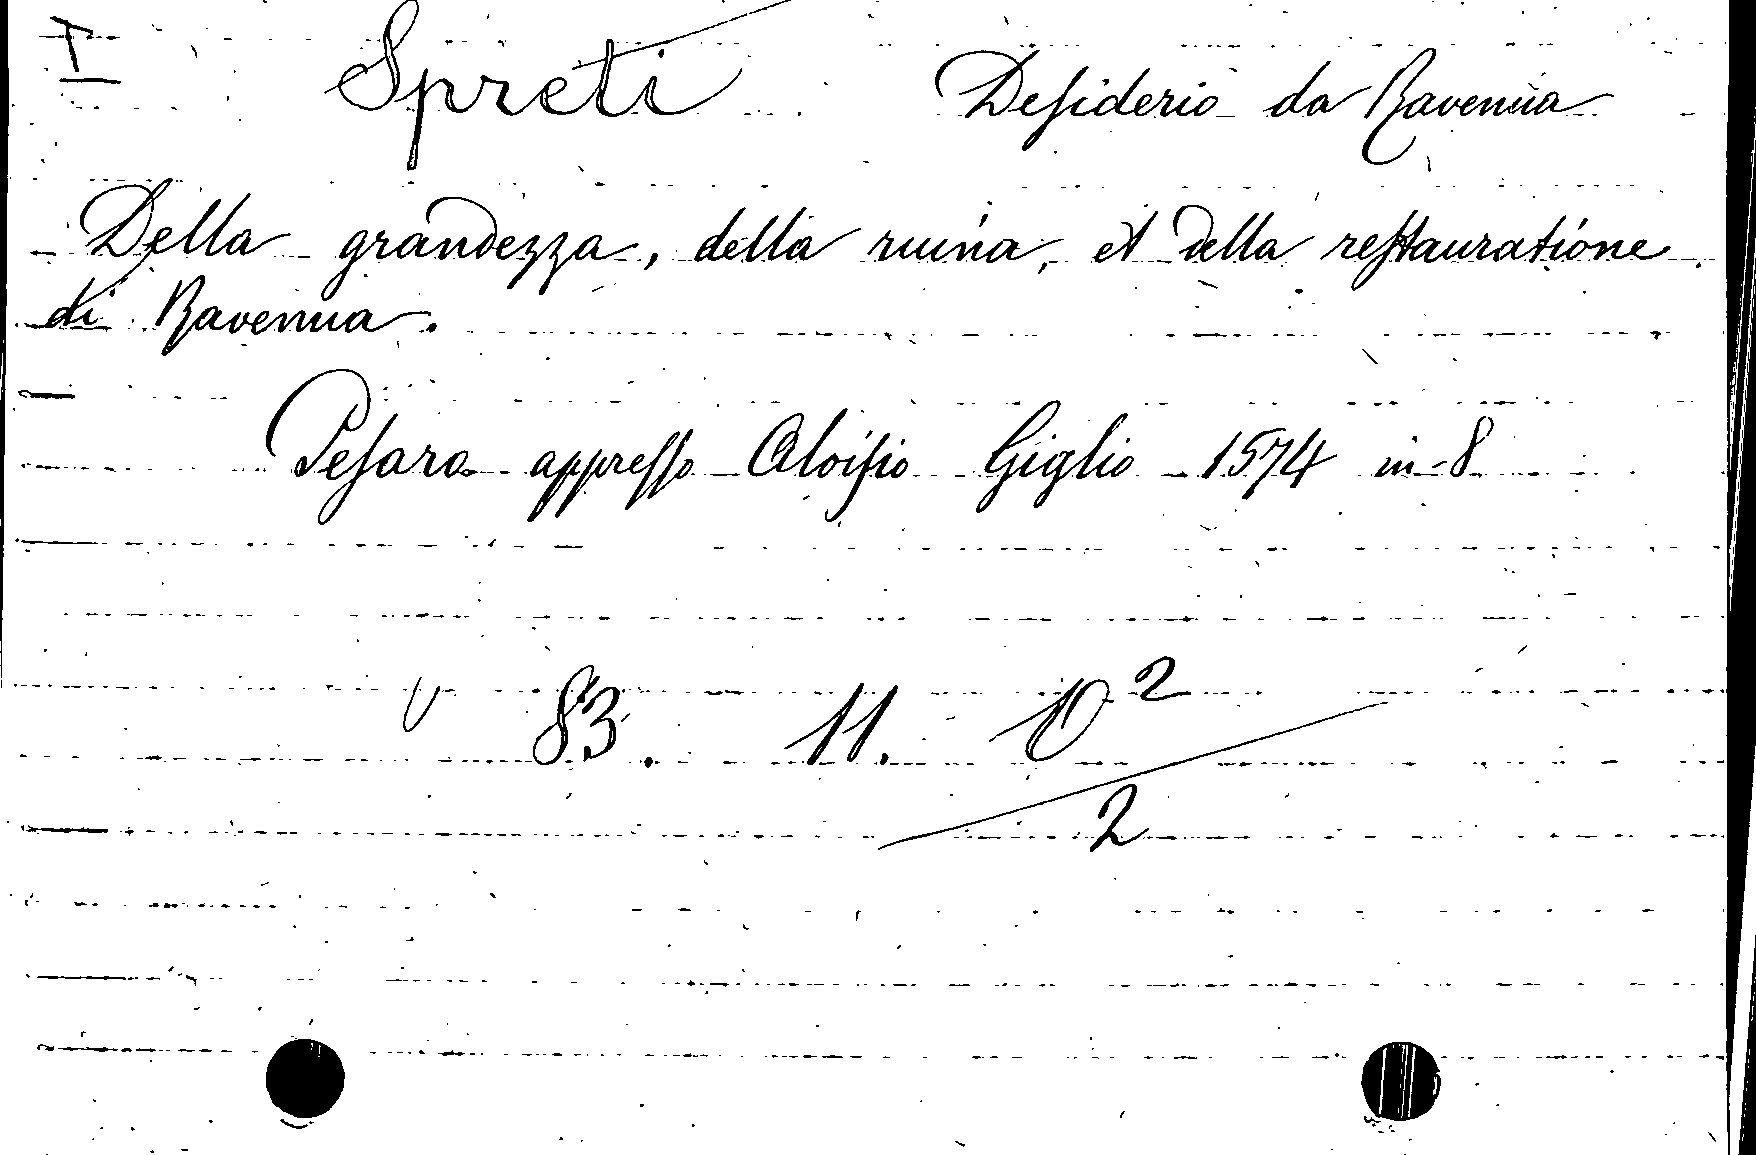 I Spreti Desiderio da Ravenna
Della grandezza, della ruina, et della restauratione
di Ravenna.
Pesaro appresso Aloisio Giglio 1574 in-8
83. 11. 10 2
2